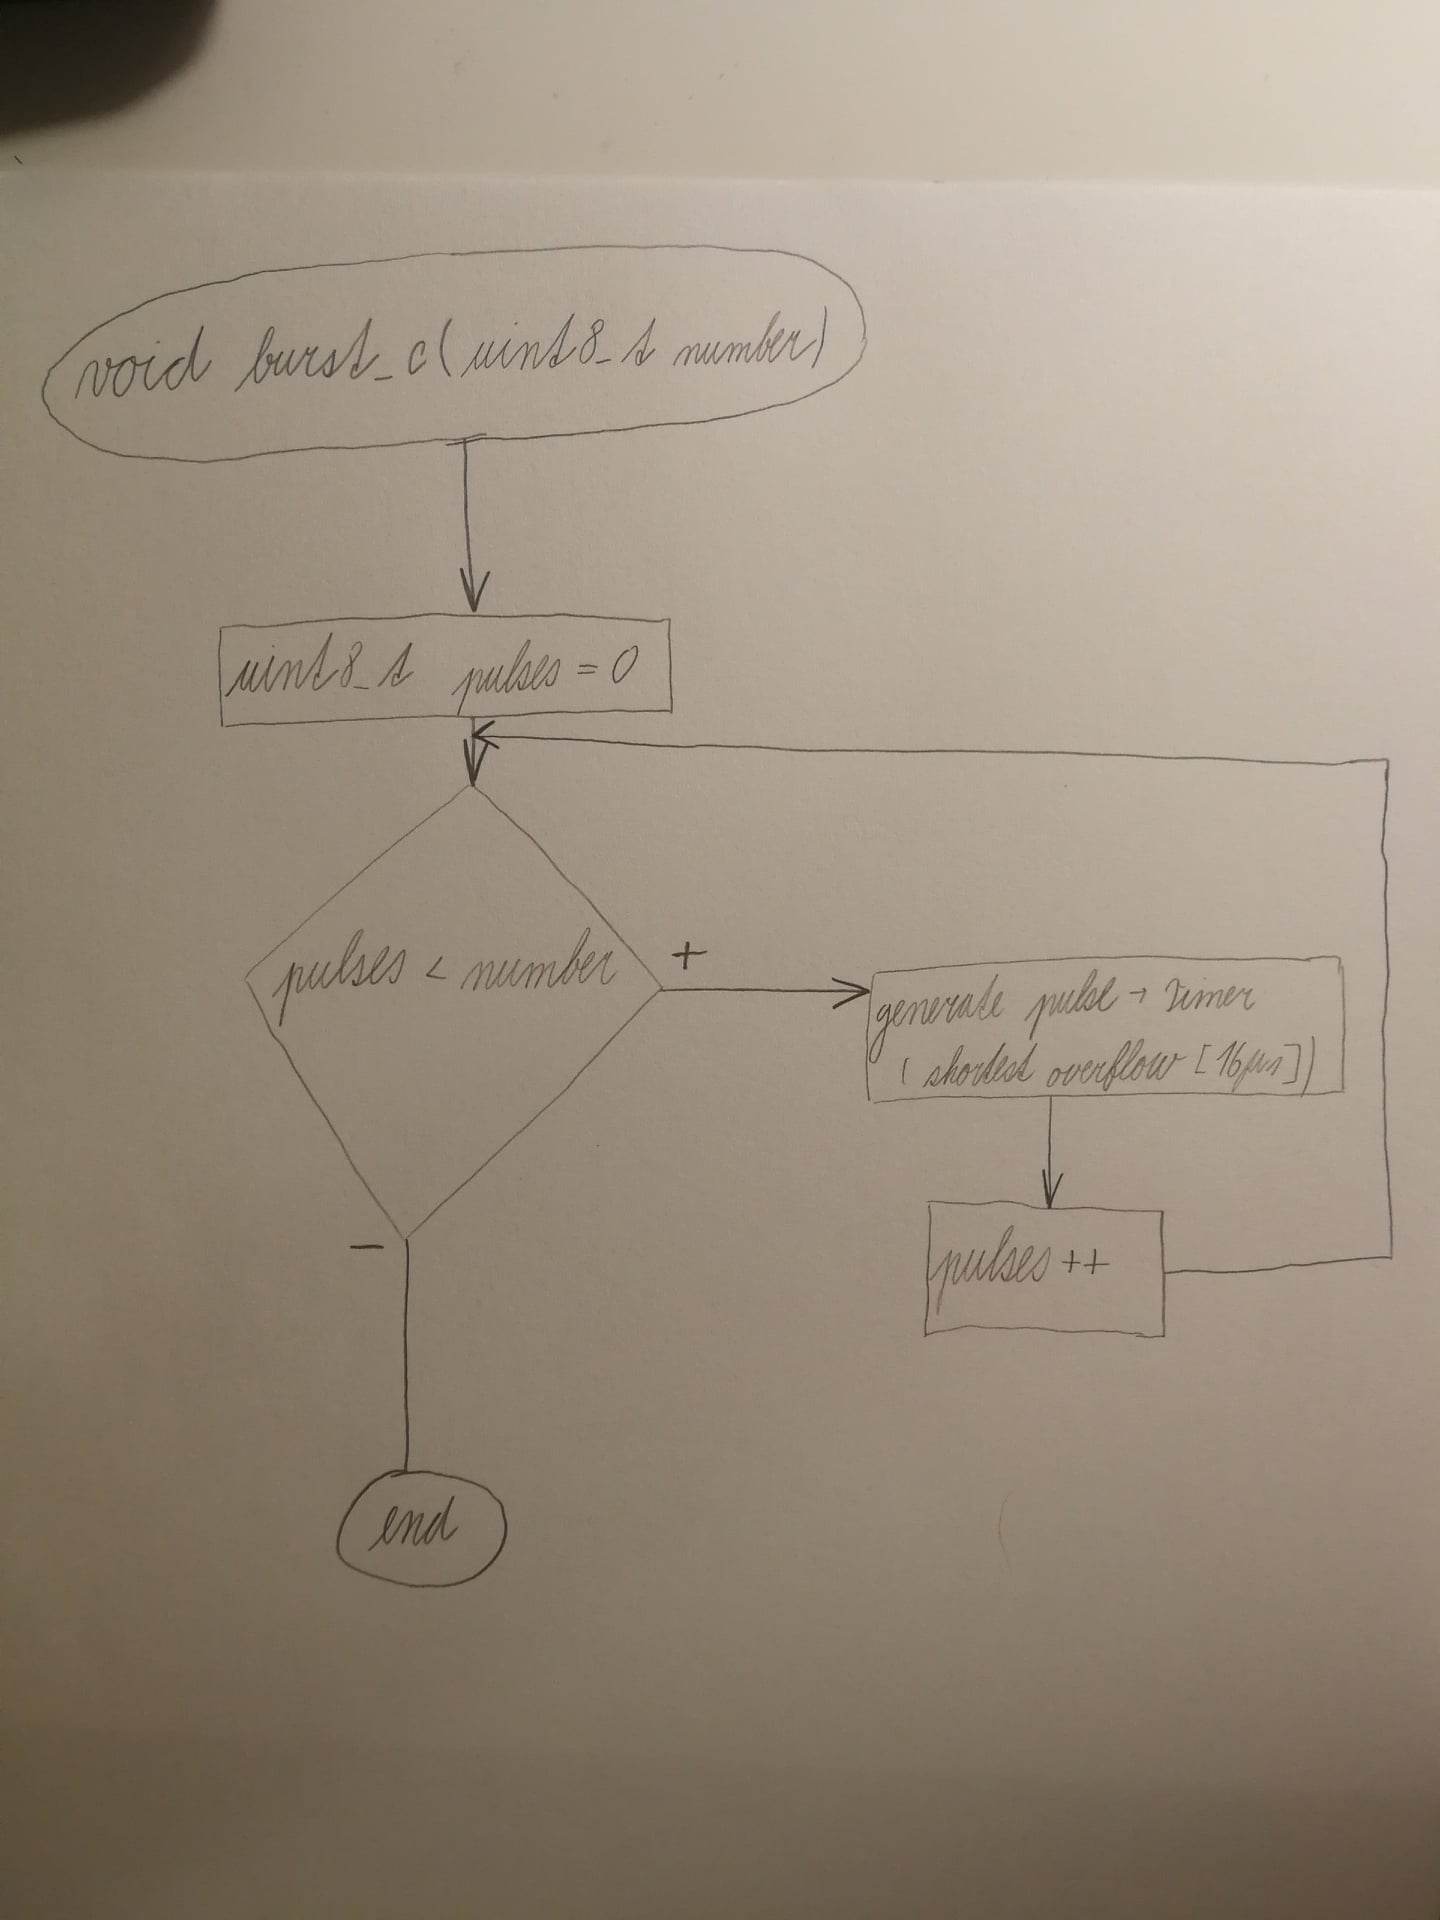 void burst_c(uint8_t number)
uint8_t pulses = 0
pulses < number
+
generate pulse → timer
( shortest overflow [16µs])
pulses ++
-
end